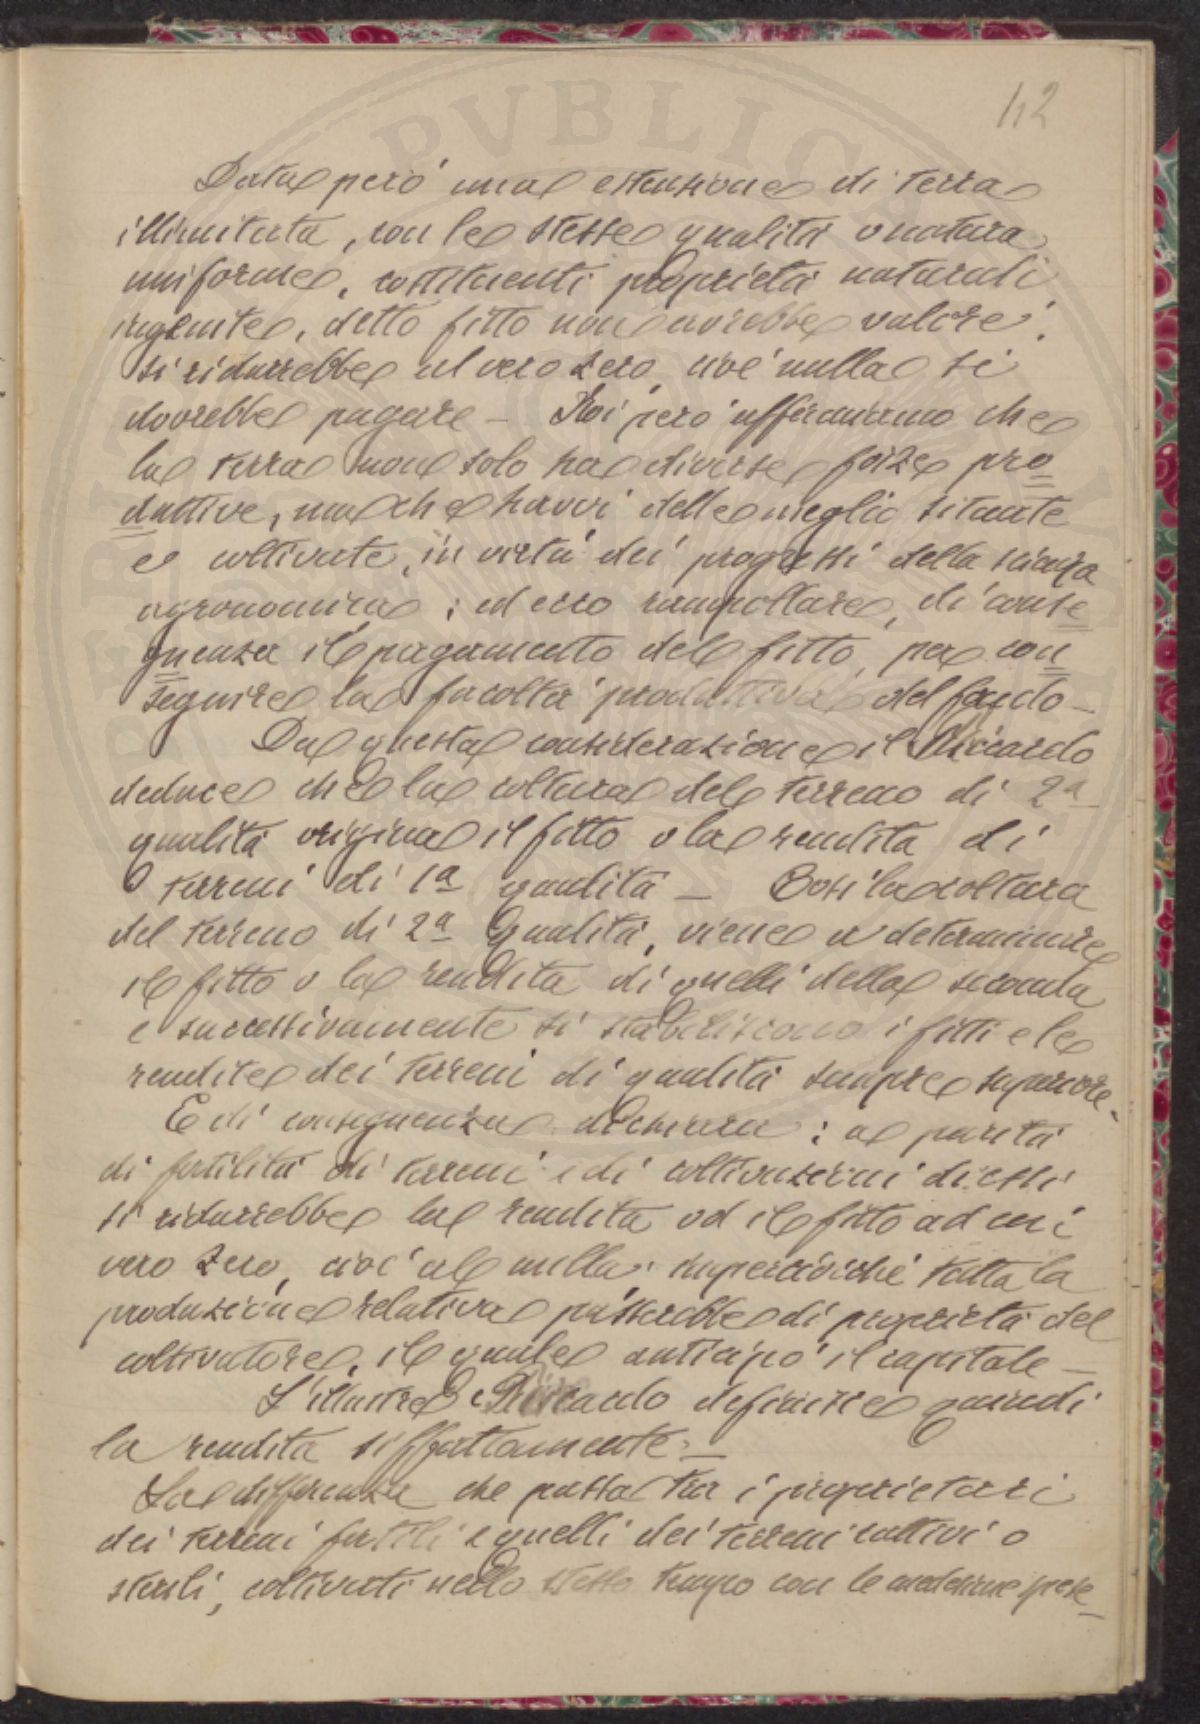 42
Data però una estensione di terra
illimitata, con le stesse qualità o natura
uniforme, costituenti proprietà naturali
ingenite, detto fitto non avrebbe valore,
si ridurrebbe al vero zero, cioè nulla si
dovrebbe pagare — Noi però affermiamo che
la terra non solo ha diverse forze pro
duttive, ma che havvi delle meglio situate
e coltivate, in virtù dei progressi della scienza
agronomica; ed ecco rampollare, di conse
guenza il pagamento del fitto, per con
seguire la facoltà produttiva del fondo —
Da questa considerazione il Riccardo
deduce che la coltura del terreno di 2a
qualità origina il fitto o la rendita di
terreni di 1a qualità — Così la coltura
del terreno di 2a qualità, viene a determinare
il fitto o la rendita di quelli della seconda
e successivamente si stabiliscono i fitti e le
rendite dei terreni di qualità sempre superiore.
E di conseguenza dichiara: a parità
di fertilità di terreni e di coltivazioni di essi
si ridurrebbe la rendita od il fitto ad un
vero zero, cioè al nulla; imperciocchè tutta la
produzione relativa passerebbe di proprietà del
coltivatore, il quale anticipò il capitale —
L'illustre Riccardo definisce quindi
la rendita siffattamente: —
La differenza che passa tra i proprietari
dei terreni fertili e quelli dei terreni cattivi o
sterili, coltivati nello stesso tempo con le medesime spese
PVBLICA